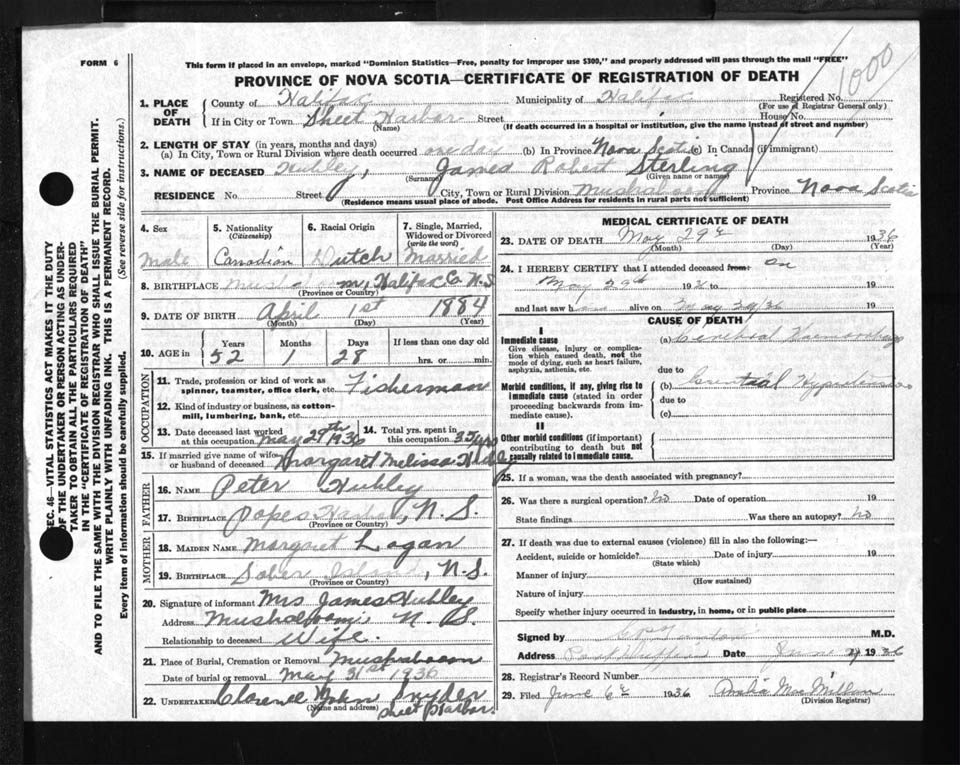 FORM 6
This form if placed in an envelope, marked "Dominion Statistics—Free, penalty for improper use $300," and properly addressed will pass through the mail "FREE"
1000
PROVINCE OF NOVA SCOTIA—CERTIFICATE OF REGISTRATION OF DEATH
1. PLACE OF DEATH
County of Halifax Municipality of Halifax Registered No.
(For use of Registrar General only)
If in City or Town Sheet Harbor Street House No.
(Name) (If death occurred in a hospital or institution, give the name instead of street and number)
2. LENGTH OF STAY (in years, months and days)
(a) In City, Town or Rural Division where death occurred one day (b) In Province Nova Scotia (c) In Canada (if immigrant)
3. NAME OF DECEASED Hubley, James Robert Sterling
(Surname) (Given name or names)
RESIDENCE No. Street City, Town or Rural Division Mushaboom Province Nova Scotia
(Residence means usual place of abode. Post Office Address for residents in rural parts not sufficient)
4. Sex
Male
5. Nationality
(Citizenship)
Canadian
6. Racial Origin
Dutch
7. Single, Married, Widowed or Divorced
(write the word)
Married
8. BIRTHPLACE Halifax Co N.S
(Province or Country)
9. DATE OF BIRTH April 1st 1884
(Month) (Day) (Year)
10. AGE in
Years Months Days If less than one day old
52 1 28 hrs. or min.
OCCUPATION
11. Trade, profession or kind of work as spinner, teamster, office clerk, etc. Fisherman
12. Kind of industry or business, as cotton-mill, lumbering, bank, etc.
13. Date deceased last worked at this occupation May 29th 1936
14. Total yrs. spent in this occupation 35 yrs
15. If married give name of wife or husband of deceased Margaret Melissa Hubley
FATHER
16. NAME Peter Hubley
17. BIRTHPLACE Popes Harbor, N.S.
(Province or Country)
MOTHER
18. MAIDEN NAME Margaret Logan
19. BIRTHPLACE Sober Island, N.S.
(Province or Country)
20. Signature of informant Mrs James Hubley
Address Mushaboom, N. S.
Relationship to deceased Wife.
21. Place of Burial, Cremation or Removal Mushaboom
Date of burial or removal May 31st 1936
22. UNDERTAKER Clarence John Snyder
(Name and address) Sheet Harbor.
MEDICAL CERTIFICATE OF DEATH
23. DATE OF DEATH May 29th 1936
(Month) (Day) (Year)
24. I HEREBY CERTIFY that I attended deceased from: on
May 29th 1936 to
and last saw h alive on May 29/36
CAUSE OF DEATH
I
Immediate cause
Give disease, injury or complication which caused death, not the mode of dying, such as heart failure, asphyxia, asthenia, etc.
(a) Cerebral Hemorrhage
due to
Morbid conditions, if any, giving rise to immediate cause (stated in order proceeding backwards from immediate cause).
(b) Essential Hypertension
due to
(c)
II
Other morbid conditions (if important) contributing to death but not causally related to immediate cause.
25. If a woman, was the death associated with pregnancy?
26. Was there a surgical operation? No Date of operation 19
State findings Was there an autopsy? No
27. If death was due to external causes (violence) fill in also the following:—
Accident, suicide or homicide? Date of injury 19
(State which)
Manner of injury
(How sustained)
Nature of injury
Specify whether injury occurred in industry, in home, or in public place
Signed by M.D.
Address Port Dufferin Date June 1936
28. Registrar's Record Number
29. Filed June 6th 1936 MacMillan
(Division Registrar)
SEC. 46—VITAL STATISTICS ACT MAKES IT THE DUTY
OF THE UNDERTAKER OR PERSON ACTING AS UNDER-
TAKER TO OBTAIN ALL THE PARTICULARS REQUIRED
IN THE "CERTIFICATE OF REGISTRATION OF DEATH"
AND TO FILE THE SAME WITH THE DIVISION REGISTRAR WHO SHALL ISSUE THE BURIAL PERMIT.
WRITE PLAINLY WITH UNFADING INK. THIS IS A PERMANENT RECORD.
Every item of information should be carefully supplied. (See reverse side for instructions.)